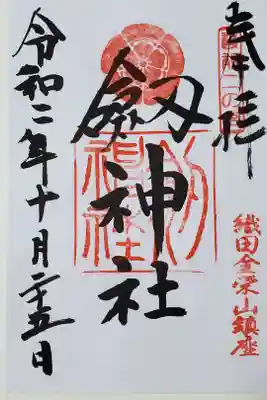 奉拝
織田金栄山鎮座
劔神社
令和二年十月二十五日